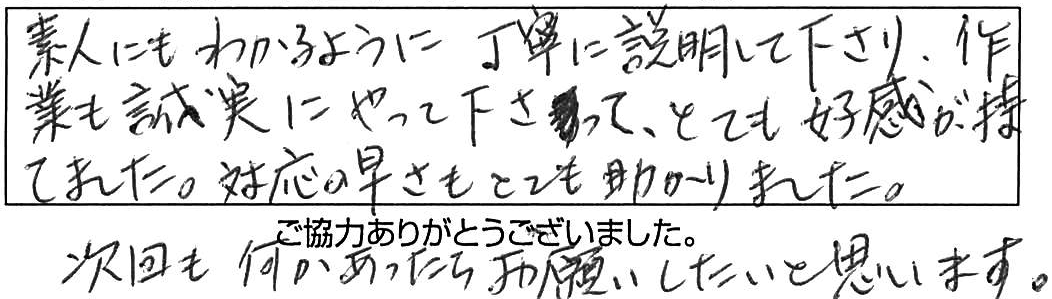 素人にもわかるように丁寧に説明して下さり、作
業も誠実にやって下さって、とても好感が持
てました。対応の早さもとても助かりました。
ご協力ありがとうございました。
次回も何かあったらお願いしたいと思います。